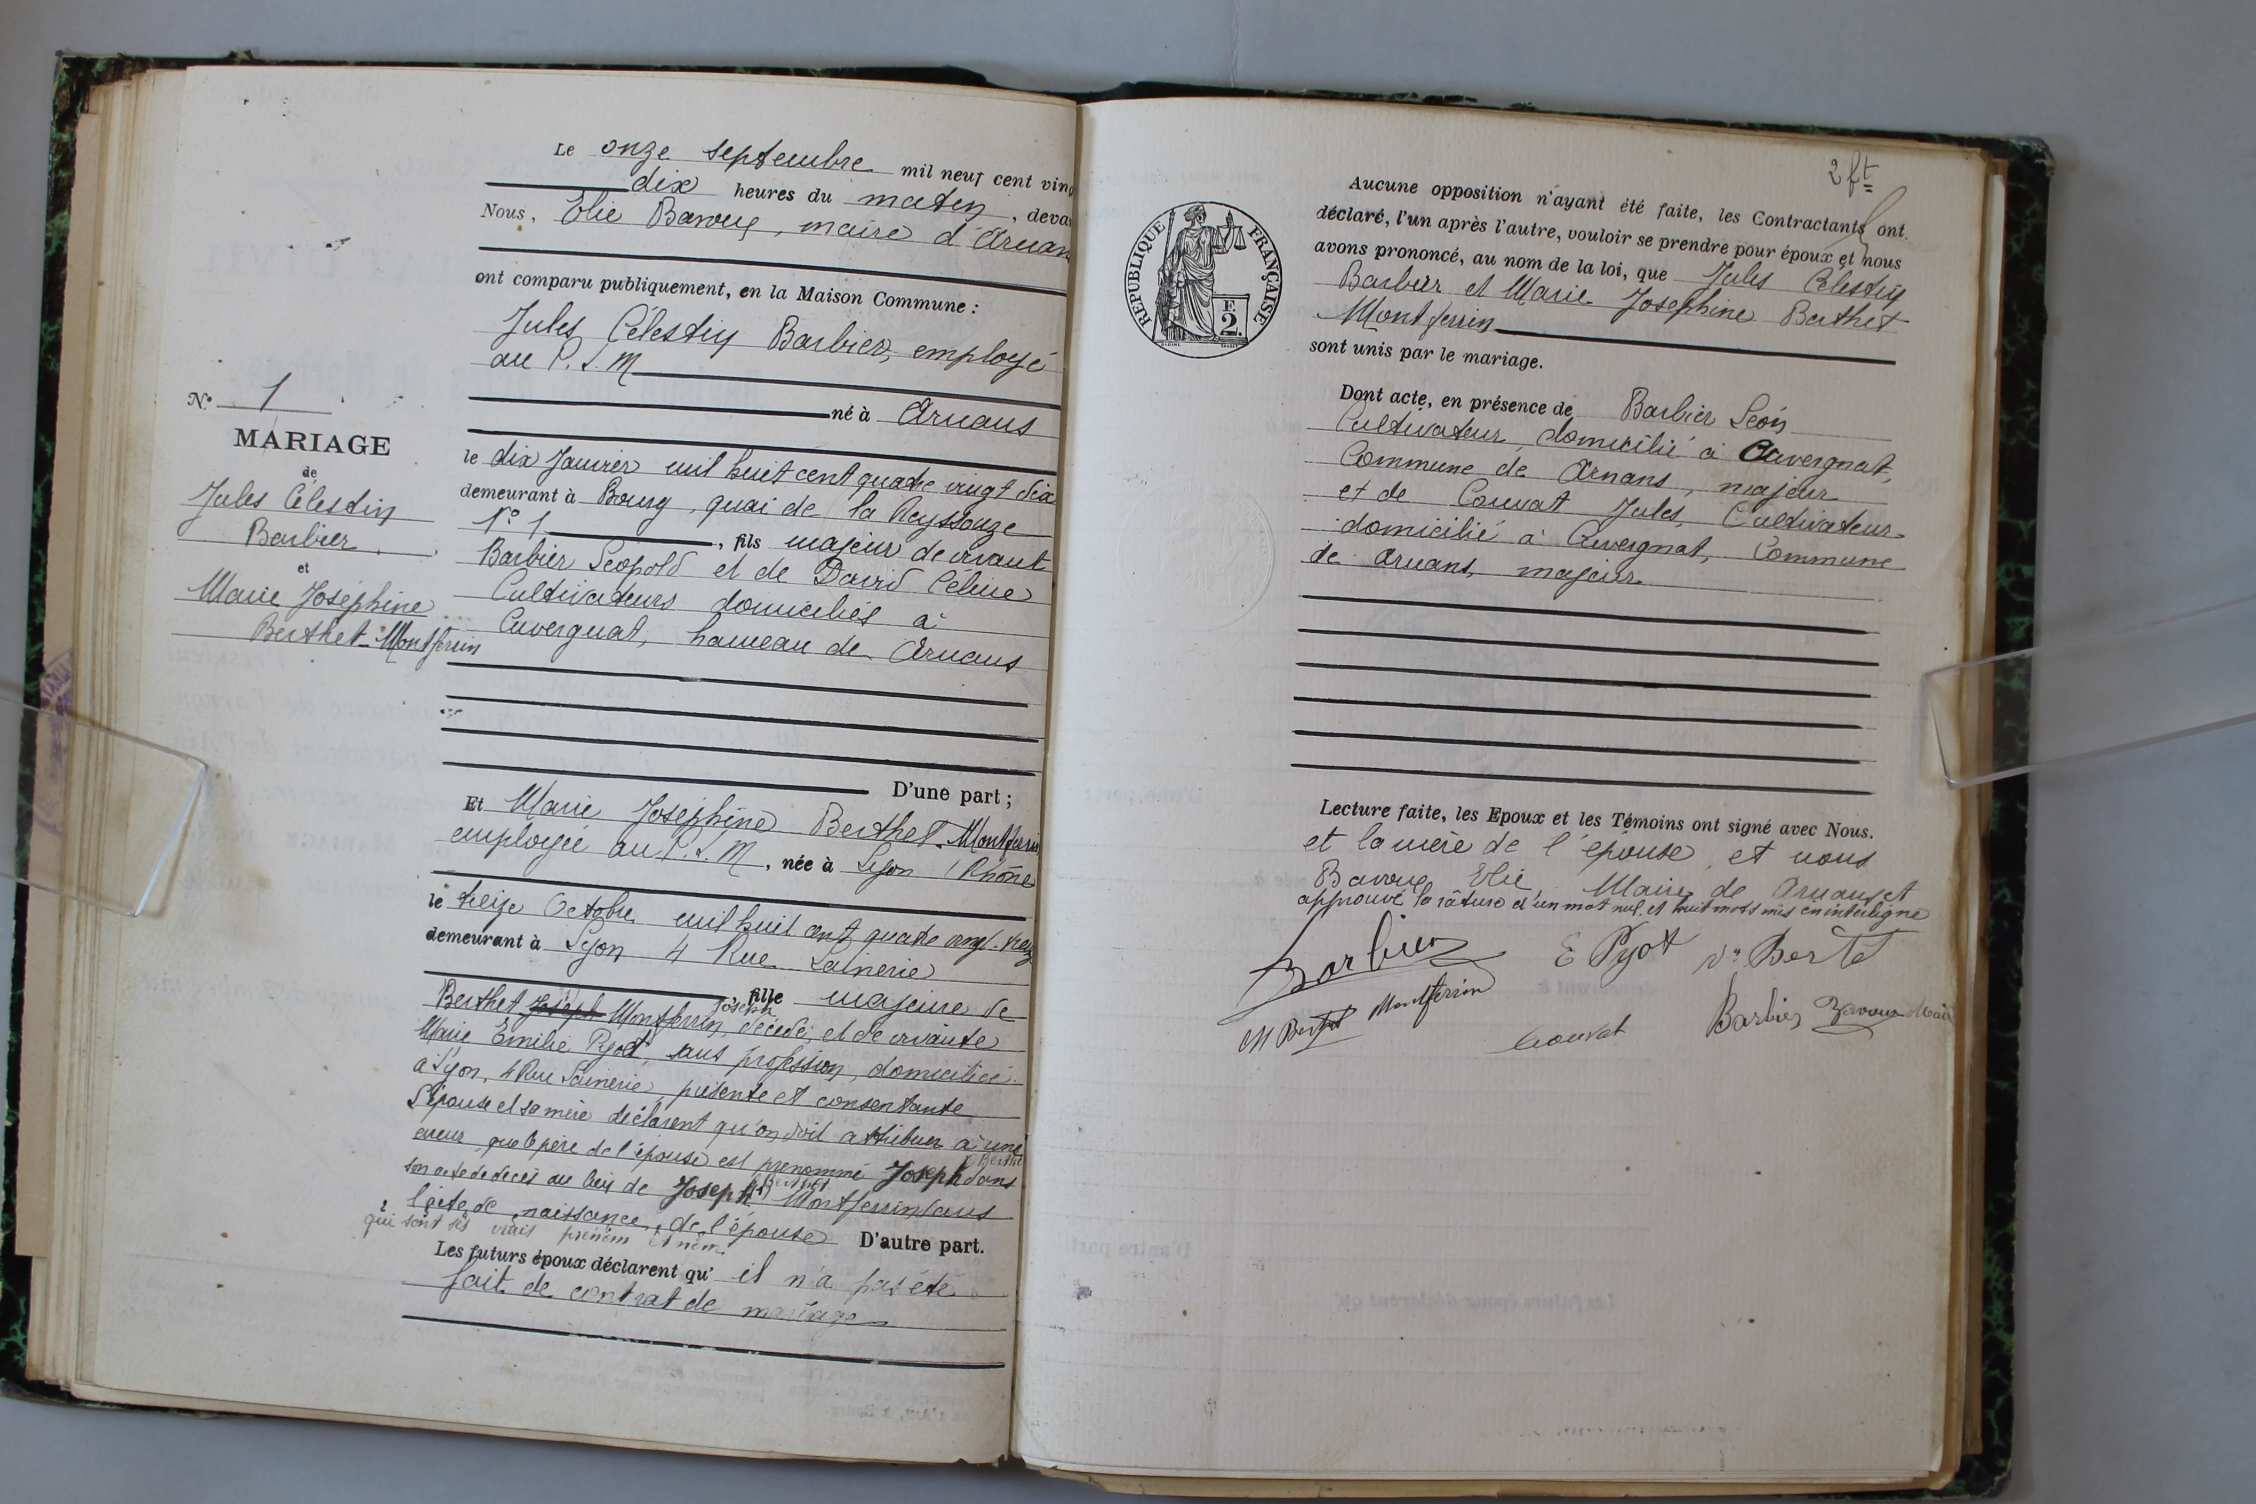 Le onze septembre mil neuf cent ving
dix heures du matin, deva
Nous, Elie Bavoux, maire d'Arnan
ont comparu publiquement, en la Maison Commune :
Jules Célestin Barbier, employé
au P.L.M
né à Arnans
le dix Janvier mil huit cent quatre vingt dix
demeurant à Bourg, quai de la Reyssouze
N° 1, fils majeur de vivant
Barbier Léopold et de David Céline
Cultivateurs domiciliés à
Cuvergnat, hameau de Arnans
D'une part ;
N° 1
MARIAGE
de
Jules Célestin
Barbier
et
Marie Joséphine
Berthet-Montferrin
Et Marie Joséphine Berthet-Montferrin
employée au P.L.M, née à Lyon (Rhône
le treize Octobre mil huit cent quatre vingt-treize
demeurant à Lyon 4 Rue Lainerie
, fille majeure de
Berthet Joseph Montferrin Joseph, décédé, et de vivante
Marie Emilie Pyot, sans profession, domiciliée
à Lyon, 4 Rue Lainerie, présente et consentante
L'épouse et sa mère déclarent qu'on doit attribuer à une
erreur que le père de l'épouse est prénommé Joseph Berthet dans
son acte de décès au lieu de Joseph Berthet Montferrin dans
l'acte de naissance, de l'épouse D'autre part.
qui sont ses vrais prénom et nom
Les futurs époux déclarent qu'il n'a pas été
fait de contrat de mariage
2 ft
RÉPUBLIQUE FRANÇAISE
F.
2.
Aucune opposition n'ayant été faite, les Contractants ont
déclaré, l'un après l'autre, vouloir se prendre pour époux et nous
avons prononcé, au nom de la loi, que Jules Célestin
Barbier et Marie Josephine Berthet
Montferrin
sont unis par le mariage.
Dont acte, en présence de Barbier Léon
Cultivateur, domicilié à Cuvergnat,
Commune de Arnans, majeur
et de Couvat Jules, Cultivateur
domicilié à Cuvergnat, Commune
de Arnans, majeur
Lecture faite, les Epoux et les Témoins ont signé avec Nous.
et la mère de l'épouse et nous
Bavoux Elie, Maire de Arnans et
approuvé la râture d'un mot nul et huit mots mis en interligne
Barbier E Pyot Vve Berte
M Berthet Montferrin
Couvat Barbier Bavoux Maire